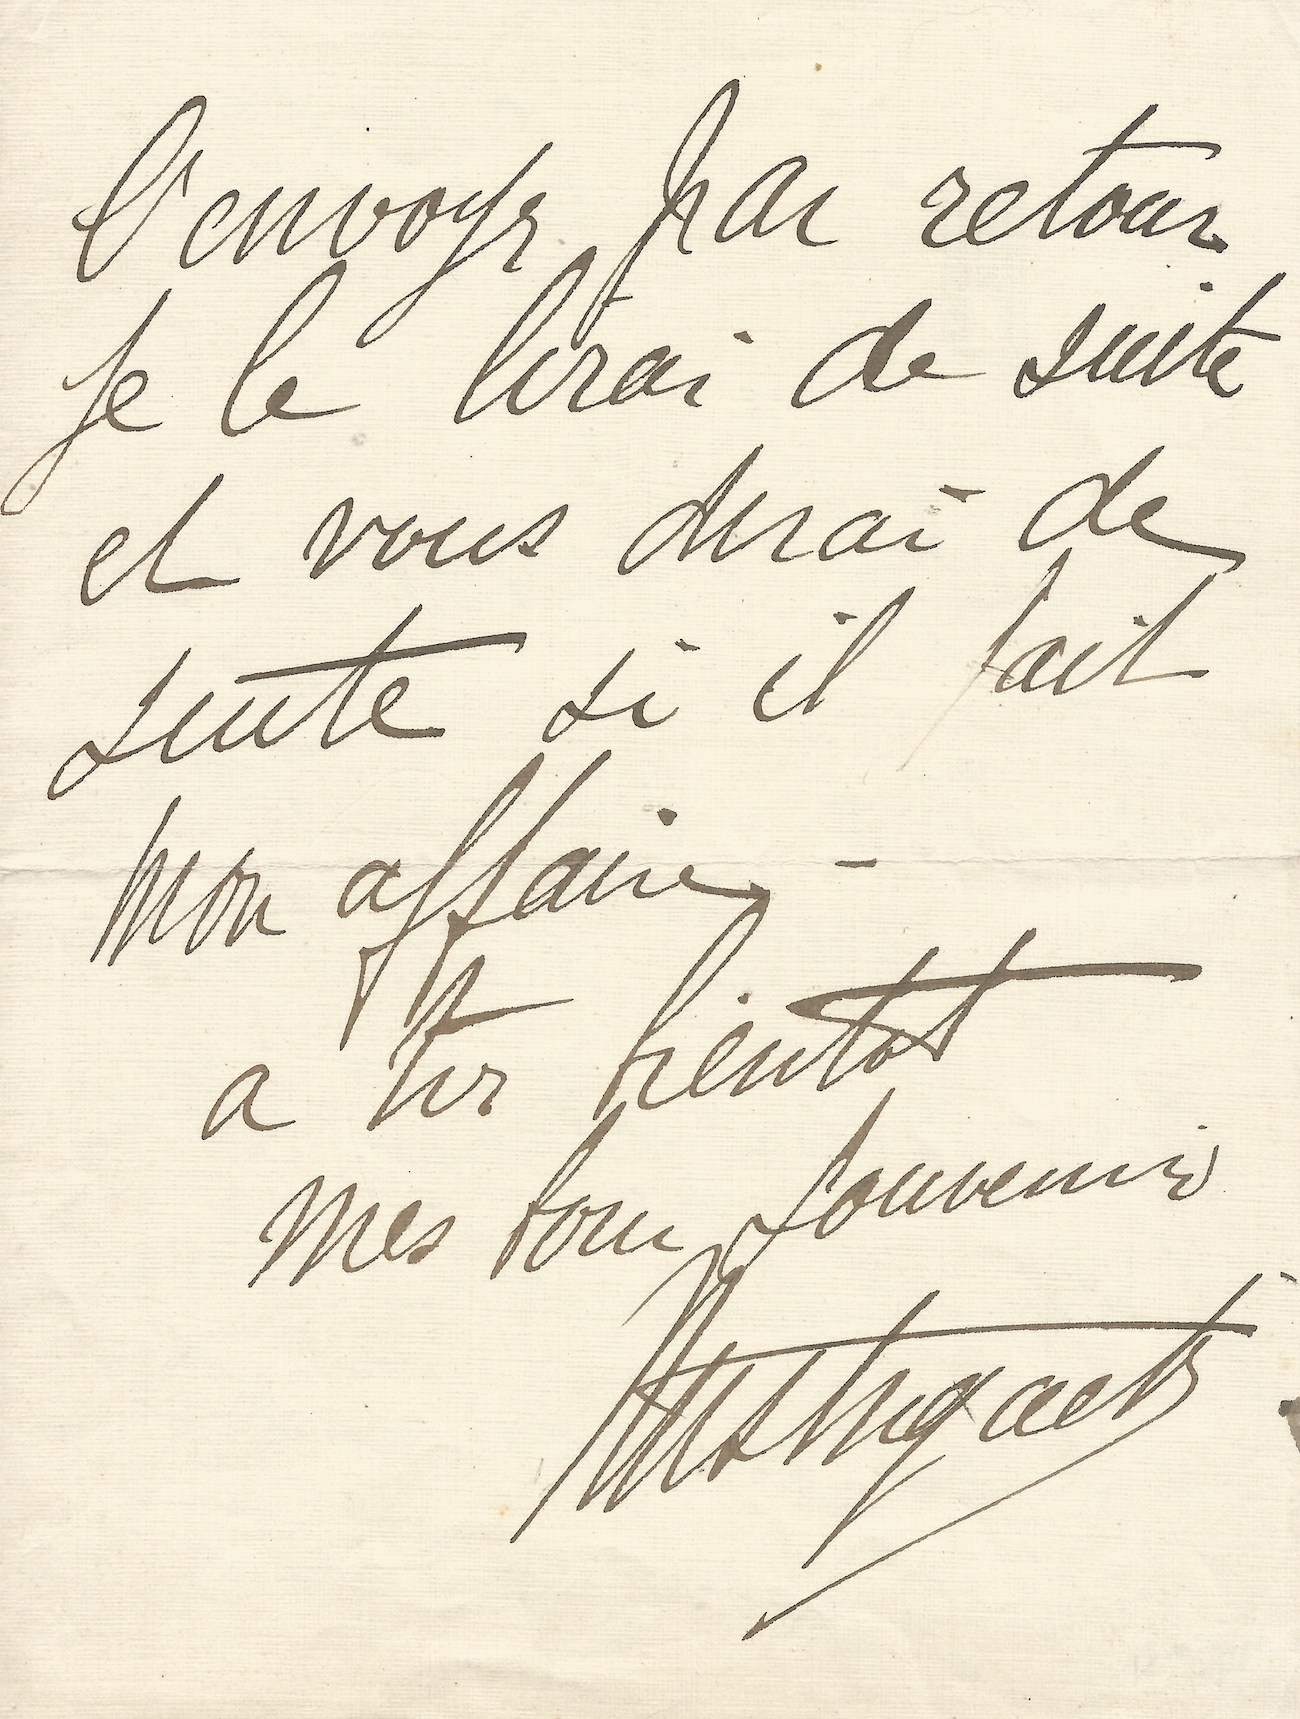 l'envoyer par retour
je le lirai de suite
et vous dirai de
suite si il fait
mon affaire –
a tres bientot
mes bons souvenirs
Mistinguett